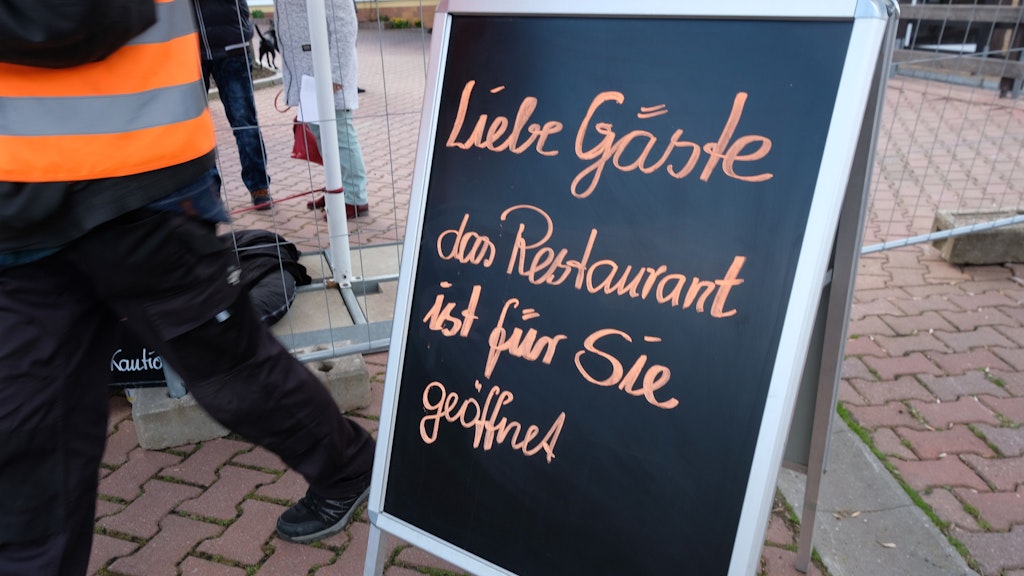 Liebe Gäste
das Restaurant
ist für Sie
geöffnet